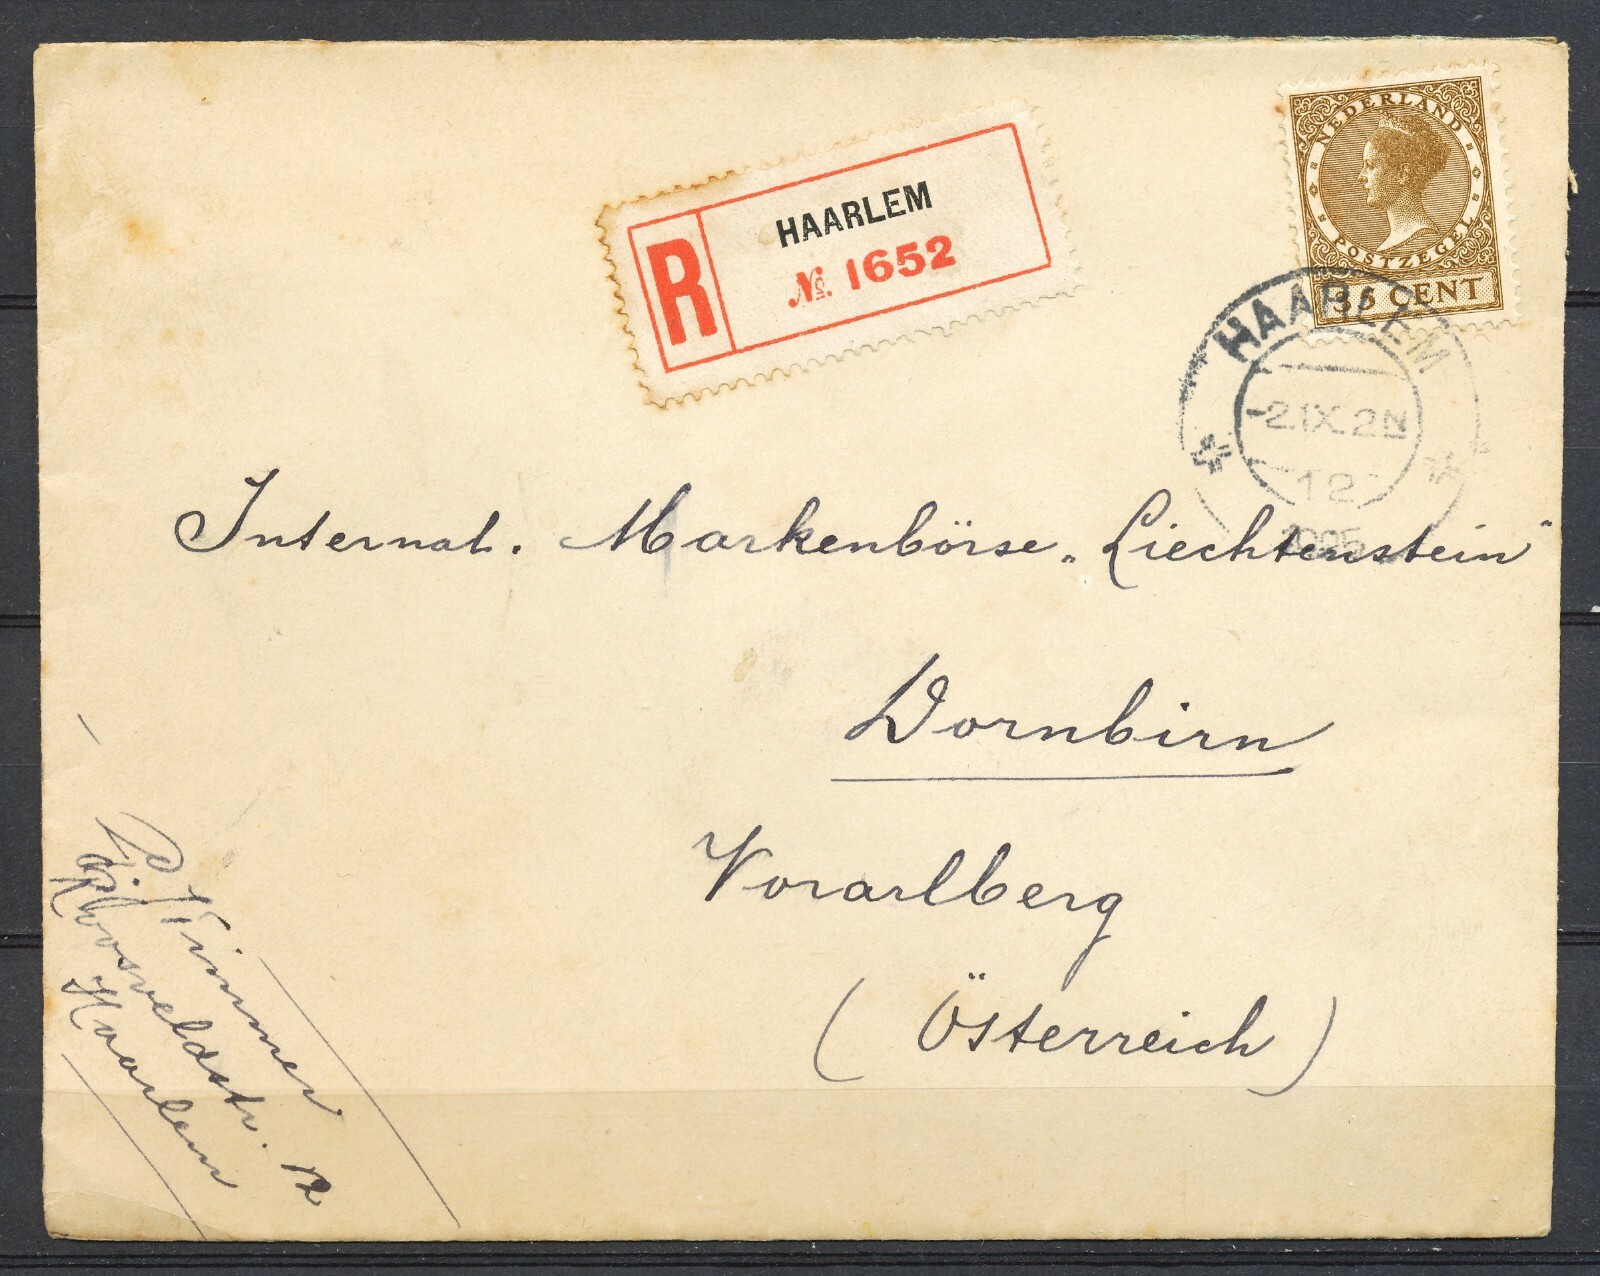 NEDERLAND
POSTZEGEL
35 CENT
R
HAARLEM
№. 1652
HAARLEM
-2.IX.2N
12
Internat. Markenbörse „Liechtenstein"
Dornbirn
Vorarlberg
(Österreich)
Timmer
Haarlem